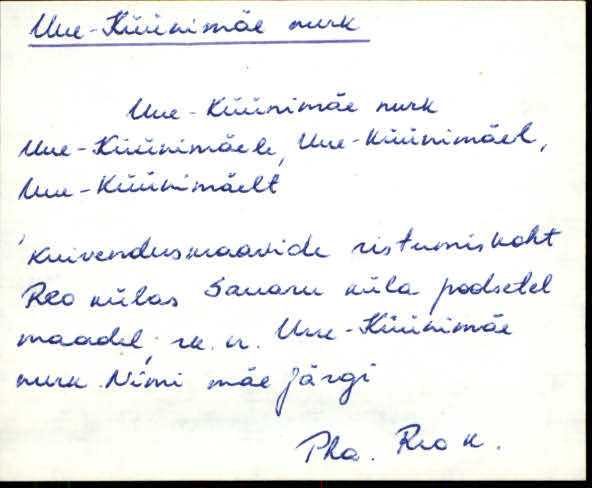 Uue-Küünimäe nurk
Uue-Küünimäe nurk
Uue-Küünimäele, Uue-Küünimäel,
Uue-Küünimäelt
Kuivenduskraavide ristumiskoht
Reo külas Sauaru küla poolsetel
maadel; rk. n. Uue-Küünimäe
nurk. Nimi mäe järgi
Pha. Reo k.